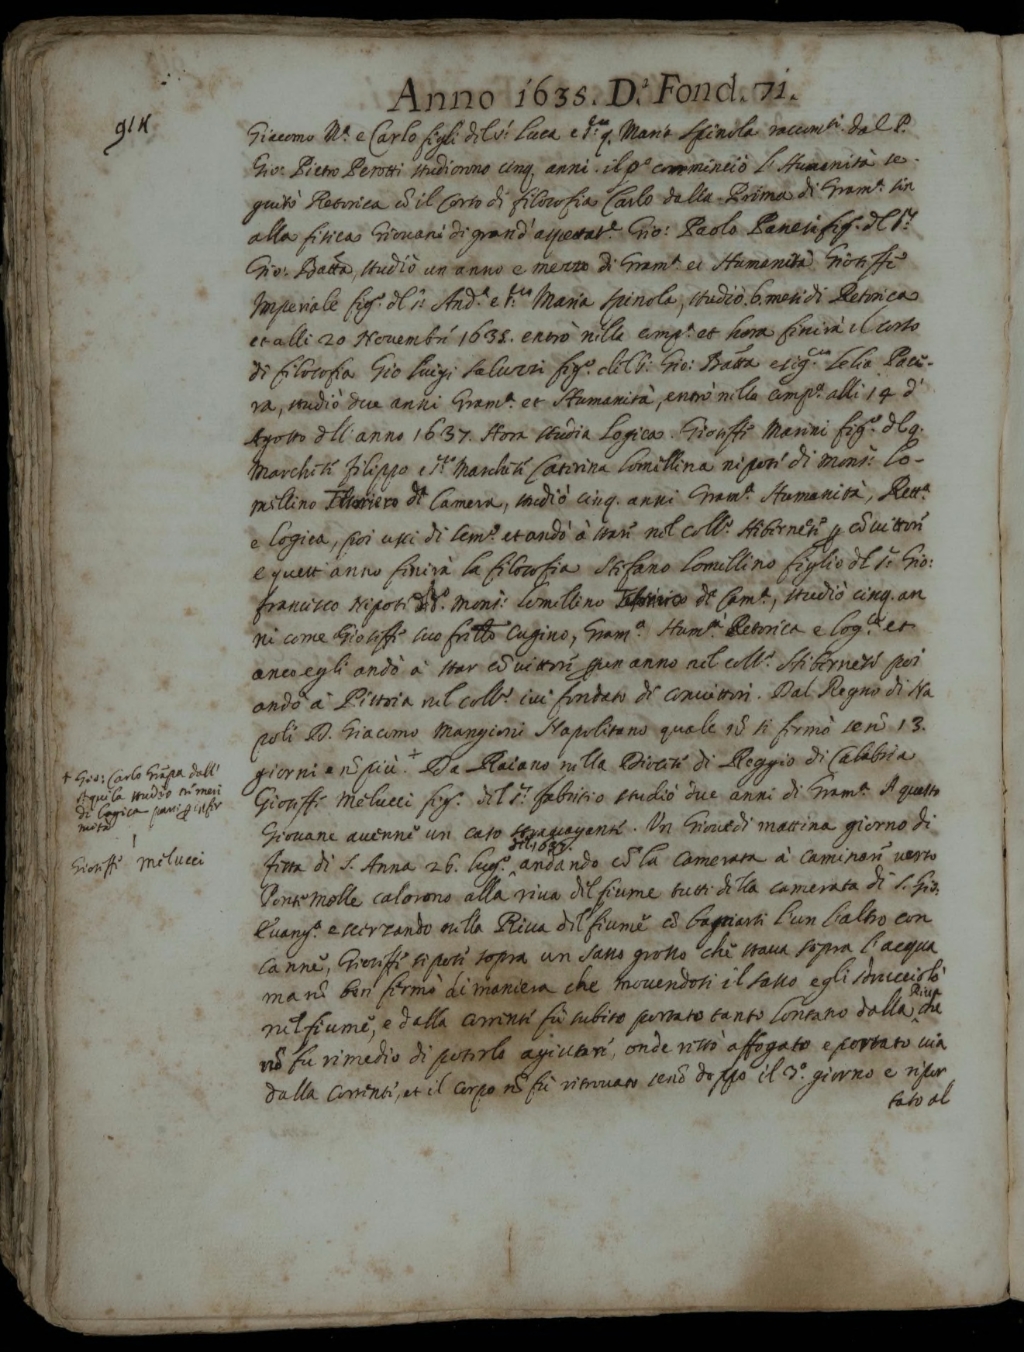 Anno 1635. Di Fond. 71.
Giacomo Mª. e Carlo figli del si: Luca e dtª. q. Maria Spinola racomti. dal P.
Gio: Pietro Perotti studiorno cinq. anni. il pº. comminciò l'Humanità se-
guitò Retorica cõ il Corso di filosofia Carlo dalla Prima di Gramª. sin
alla fisica Giovani di grand' aspettatª. Gio: Paolo Panesi figº. dl sr.
Gio: Batta, studiò un anno e mezzo di Gramª. et Humanità. Gioseffe
Imperiale figº. dl si. Andª. e sra Maria Spinola, studiò 6. mesi di Retorica
et alli 20 Novembre 1638. entrò nella compª. et hora finirà il corso
di filosofia Gio Luigi Saluzzi figº. del Sr. Gio: Batta e sigra. Lelia Pace-
ra, studiò due anni Gramª. et Humanità, entrò nella compª. alli 14 d'
Agosto dll' anno 1637. Hora studia Logica. Gioseffe Marini figº. dl q.
Marchese Filippo e sra Marchese Caterina Lomellina nepote di Monsr. Lo-
mellino Thesoriero di Camera, studiò cinq. anni Gramª. Humanità, Rettª.
e Logica, poi uscì di Semº. et andò à stare nel collº. Hibernese p cõuittore
e quest' anno finirà la filosofia Stefano Lomellino figlio dl Sr. Gio:
francesco Nipote dº. Monsr. Lomellino di Camª., studiò cinq. an
ni come Gioseffe suo frattº Cugino, Gramª. Humª. Retorica e Logca. et
anco egli andò à star cõuittore p un anno nel collº. Hibernese poi
andò à Pistoia nel collº. ivi fondato di convittori. Dal Regno di Na
poli D. Giacomo Mangioni Napolitano quale nõ si fermò senõ 13.
giorni e nõ più. + Da Raiano nella Diocesi di Reggio di Calabria
Gioseffe Melucci figº. del Sr. Fabritio studiò due anni di Gramª. A questo
Giovane auenne un caso strauagante. Un Giouedì mattina giorno di
festa di S. Anna 26. lugº. dll 1637. andando cõ la camerata à caminare verso
Ponte Molle calorono alla riua del fiume tutti della camerata di S. Gio:
Euangª. e scerzando nella Riua del fiume cõ bagnarsi l'un l'altro con
canne, Gioseffe si pose sopra un sasso grosso che staua sopra l'acqua
ma nõ ben fermo di maniera che mouendosi il sasso egli sdrucciolò
nel fiume, e dalla corrente fù subito portato tanto lontano dalla Riua che
nõ fu rimedio di poterlo agiutare, onde restò affogato e portato uia
dalla corrente, et il corpo nõ fù ritrouato senõ doppo il 3º. giorno e ripor
tato al
+ Gio: Carlo dall'
Aquila studiò tre mesi
di Logica partì p infir
mità
Gioseffe Melucci